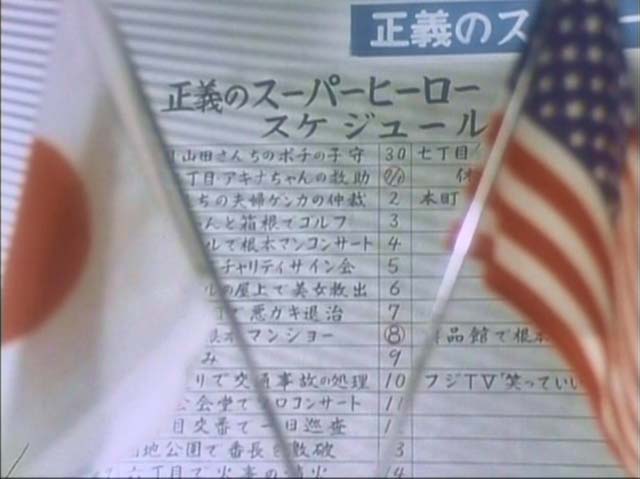 正義のス
正義のスーパーヒーロー
スケジュール
山田さんちのポチの子守 30 七丁目
丁目アキナちゃんの救助
ちの夫婦ゲンカの仲裁 2 本町
んと箱根でゴルフ 3
ルで根本マンコンサート 4
チャリティサイン会 5
ルの屋上で美女救出 6
で悪ガキ退治 7
マンショー 8 品館で根本
み 9
リで交通事故の処理 10 フジTV"笑ってい
公会堂で ロコンサート 11
目交番で一日巡査 1
地公園で番長を撃破 3
六丁目で火事の消火 14